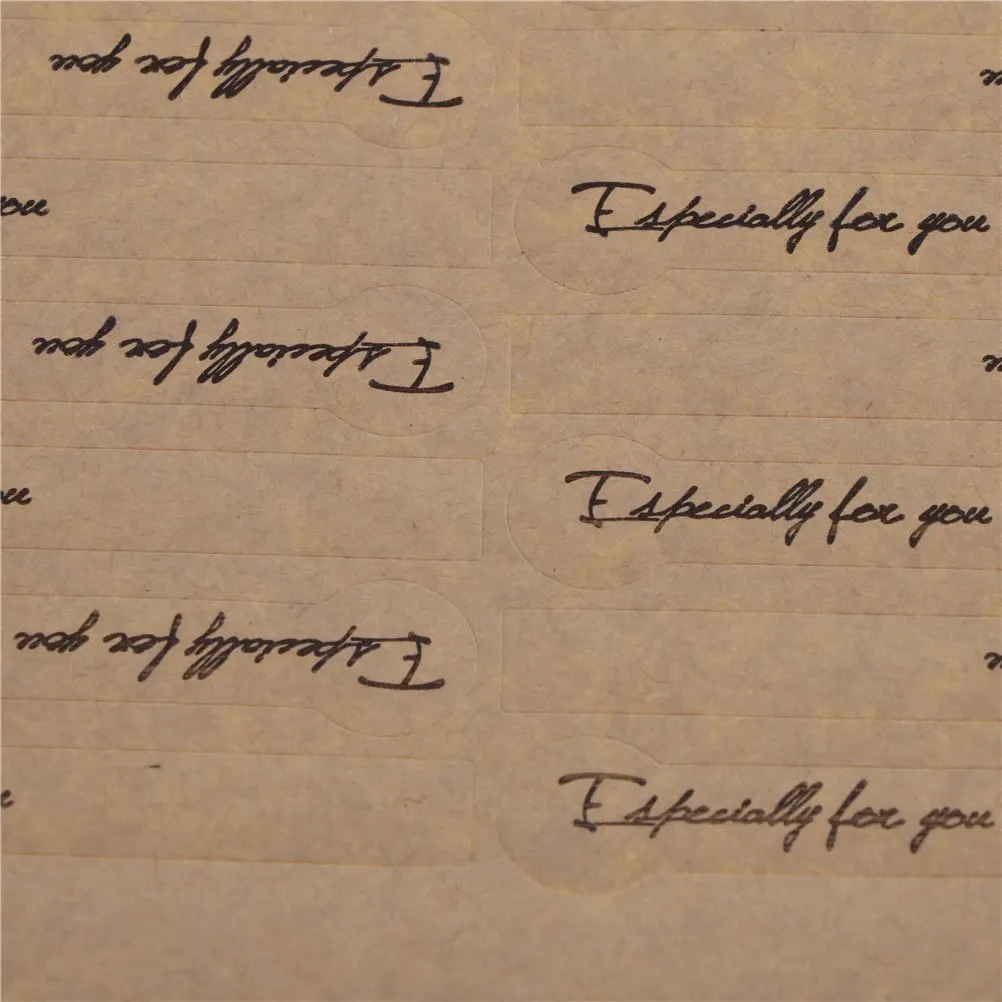 Especially for you
Especially for you
ou
Especially for you
Especially for you
Especially for you
Especially for you